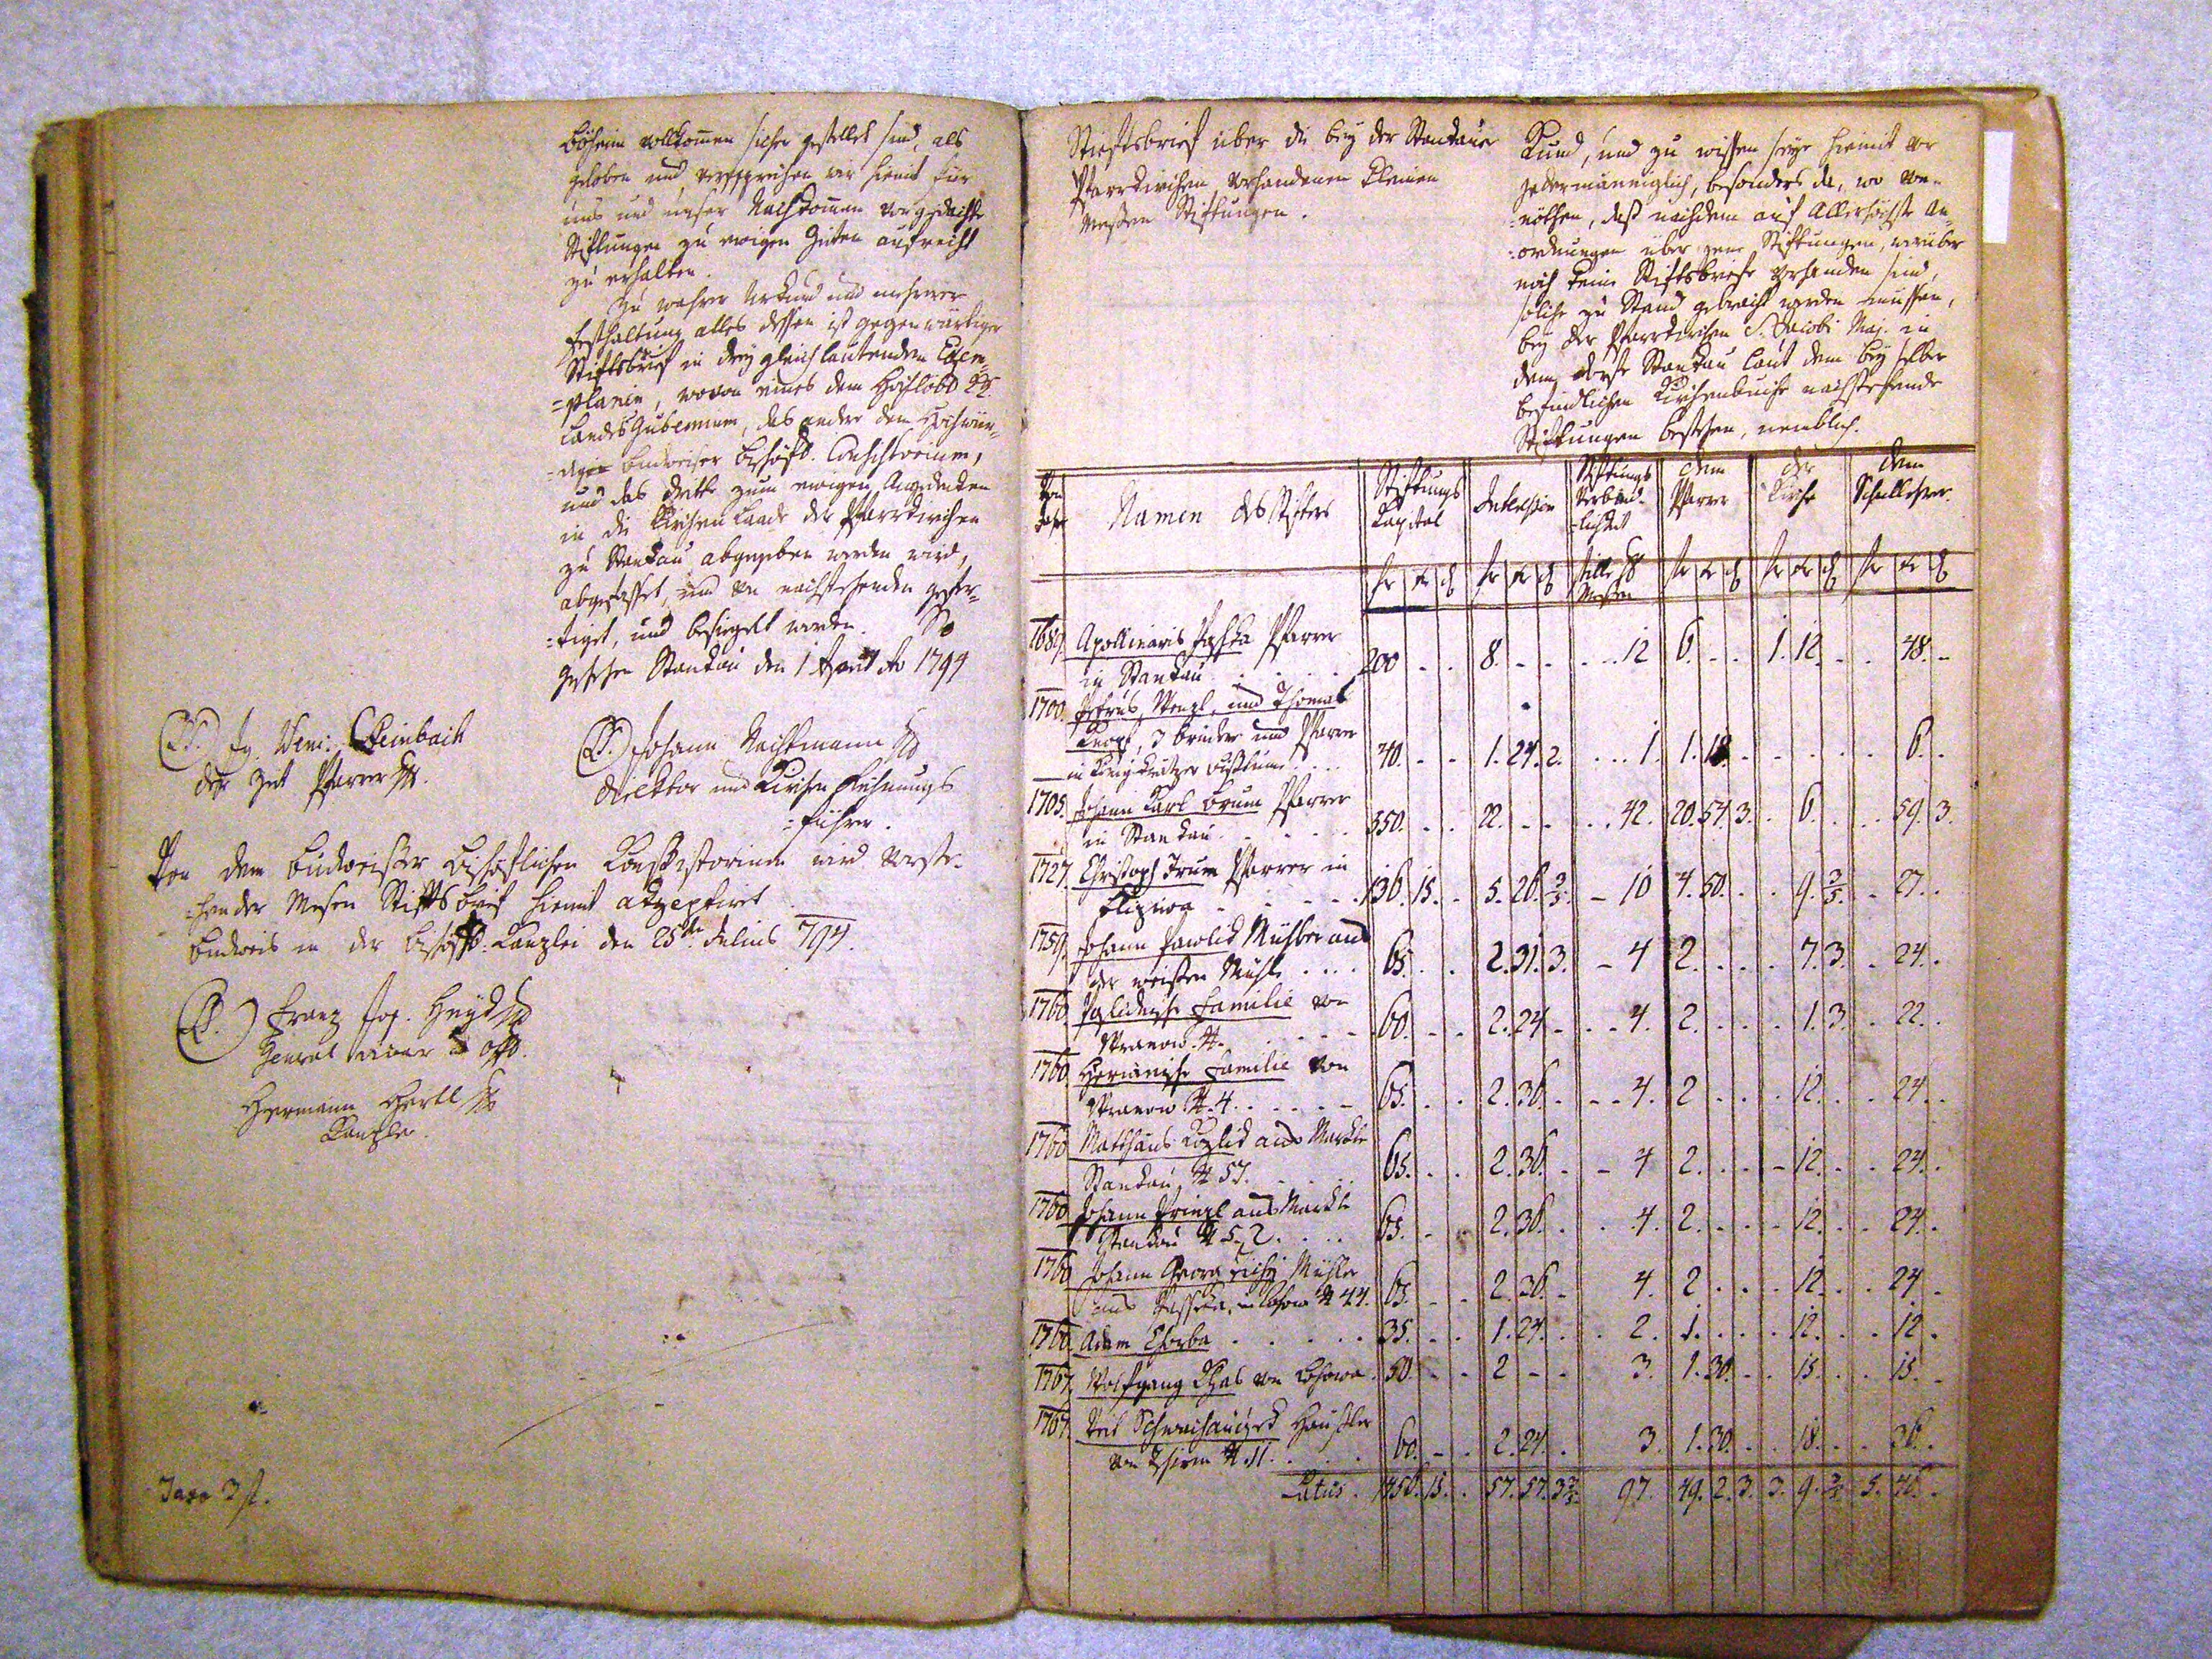 Böheim vollkommen sicher gestellet sind, als
geloben und versprechen wir hiemit für
uns und unser Nachkommen vorgedachte
Stiftungen zu ewigen Zeiten aufrecht
zu erhalten.
Zu wahrer Urkund und mehrerer
Festhaltung alles dessen ist gegenwärtiger
Stiftsbrief in drey gleichlautenden Exem-
=plarien, wovon eines dem Hochlöbl. K:K:
Landes Gubernium, das andere dem Hochwür-
=digen Budweiser Bischöfl. Consistorium,
und das dritte zum ewigen Angedenken
in die Kirchen Laade der Pfarrkirchen
zu Stankau abgegeben werden wird,
abgefasset, und von nachstehenden gefer-
=tiget, und besiegelt worden. So
geschehen Stankau den 1 April Ao 1794
(L.S.) Steinbach
der Zeit Pfarrer
(L.S.) Johann Nachtmann
Direktor und Kirchen Rechnungs
=führer.
Von dem Budweiser Bischöflichen Konsistorium wird vorste-
=hender Messen Stifts Brief hiemit akzeptiret
Budweis in der Bischöfl. Kanzlei den 25ten Julius 794.
(L.S.) Franz Jos. Heyd
General Vicar
Hermann Hertl
Kanzler.
Taxa 3 f.
Stiftsbrief über die bey der Stankauer
Pfarrkirchen vorhandenen kleinen
Messen Stiftungen.
Kund, und zu wissen seye hiemit vor
Jedermänniglich, besonders da, wo von-
=nöthen, daß nachdem auf Allerhöchste An-
=ordnungen über jene Stiftungen, worüber
noch keine Stiftsbriefe vorhanden sind,
solche zu Stand gebracht werden müssen,
bey der Pfarrkirchen S. Jacobi Maj. in
dem Stankau laut dem bey selber
befindlichen Kirchenbuche nachstehende
Stiftungen bestehen, nemblich.
Von Jahr | Namen des Stifters | Stiftungs Kapital | Interessen | Stiftungs Verbind-lichkeit | dem Pfarrer | der Kirche | dem Schullehrer
fr kr d | fr kr d | stille Messen | fr kr d | fr kr d | fr kr d
1689. Apollinaris Pfarrer
in Stankau 200 . . 8. - - . . 12 6. - - 1. 12. - . 48. -
1700. Petrus, Wenzl, und Thomas
3 Brüder und Pfarrer
in Bisthum 40. - - 1. 24. 2. . . . 1. 1. 18. - . . . . 6. .
1705. Johann Karl Pfarrer
in Stankau 550. . . 22. - - . . 42. 20. 57. 3. . 6. . . 59. 3.
1727. Christoph Pfarrer in
136. 15. - 5. 26. 3/5. - 10 4. 50. . . 9. 3/5. - 27. .
1759. Johann Pawlick Mühler aus
der weissen Mühl 63. . . 2. 31. 3. - 4 2. . . . 7. 3. . 24. .
1760. Familie von
60. - - 2. 24. - . . 4. 2. . . . 1. 3. . 22. .
1760. Familie von
№ 4. 65. . . 2. 36. . - . 4. 2 . . . 12. . . 24. .
1760 Matthäus Kozlick aus Markte
Stankau, № 57. 65. . . 2. 36. . - 4 2. . . - 12. . . 24. .
1760 Johann aus Markte
Stankau № 52. 65. . . 2. 36. . . 4. 2. . . - 12. . . 24. .
1760 Johann Georg Mühler
aus № 44. 65. . . 2. 36. - 4. 2 . . . 12. . . 24 .
1760. Adam 35. . . 1. 24. . . 2. 1. . . . 12. . . 12. .
1767. Wolfgang von 50. - - 2 - - 3. 1. 30. - . 15. . . 15. -
1767. Veit Häußler
von № 11. 60. - . 2. 24. . 3. 1. 30. . . 18. . . 36. .
Latus. 1450. 15. . 57. 57. 3 3/5. 97. 49. 2. 3. 3. 9. 3/5 5. 46. .